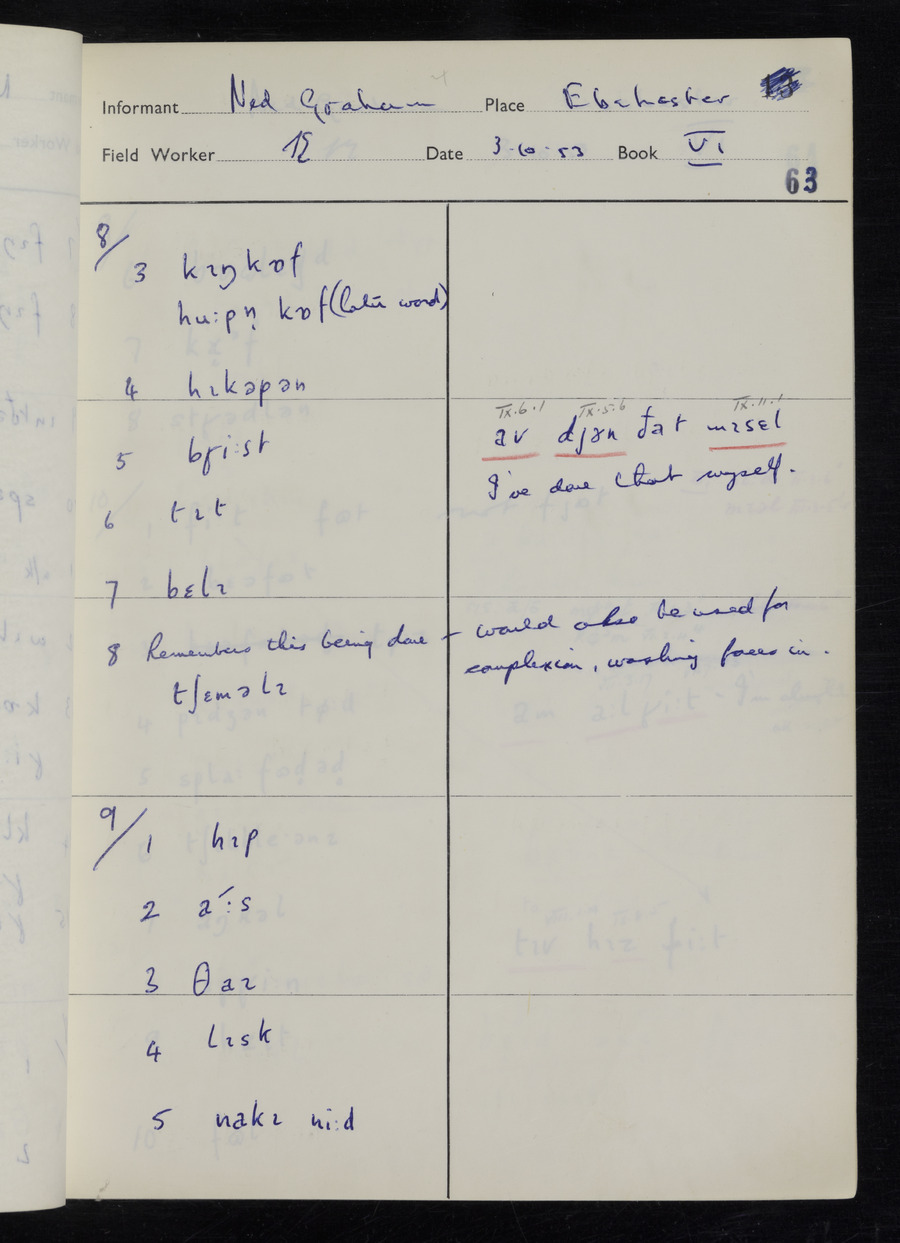 Informant Ned Graham Place Ebchester
Field Worker Date 3.10.53 Book VI
63
8/
3 kɪŋkɒf
hu:pn̩ kɒf (later word)
4 hɪkəpən
IX.6.1 IX.5.6 IX.11.1
av djɤn ðat mɪsɛl
5 bʁi:st
I've done that myself.
6 tɪt
7 bɛlɪ
8 Remembers this being done – would also be used for
complexion, washing faces in.
tʃɛməlɪ
9/
1 hɪp
2 a:s
3 θaɪ
4 lɪsk
5 nakɪ ni:d